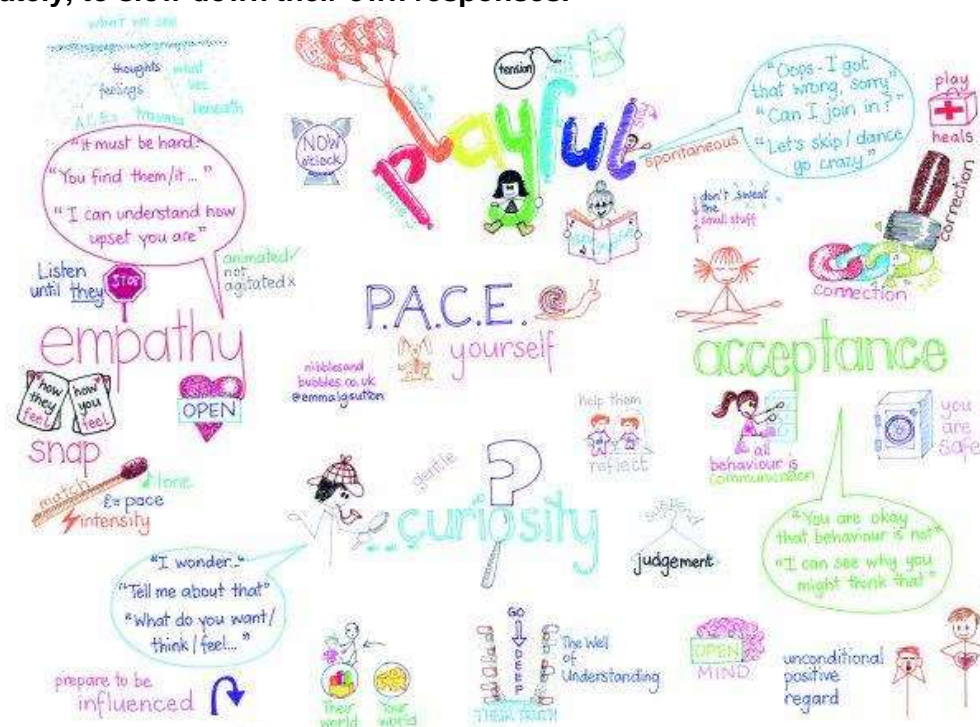 ately, to slow down their own responses.
what we see
thoughts
what
feelings
lies
A.C.E.s
trauma
beneath
"it must be hard."
"You find them/it..."
"I can understand how
upset you are"
Listen
until they
STOP
animated✓
not
agitated x
empathy
how
they
feel
how
you
feel
OPEN
snap
match
tone
pace
intensity
LIGHT
NOW
o'clock
playful
tension
spontaneous
"Oops - I got
that wrong, sorry"
"Can I join in?"
"Let's skip/dance
go crazy"
play
heals
don't sweat
the
small stuff
correction
connection
P.A.C.E.
yourself
nibblesand
bubbles.co.uk
@emmalgsutton
acceptance
help them
reflect
all
behaviour is
communication
you
are
safe
gentle
?
..curiosity
suspend
judgement
"You are okay
that behaviour is not"
"I can see why you
might think that"
"I wonder.."
"Tell me about that"
"What do you want/
think/feel..."
prepare to be
influenced
Their
world
Your
world
GO
DEEP
THEIR TRUTH
The Well
of
Understanding
OPEN
MIND
unconditional
positive
regard